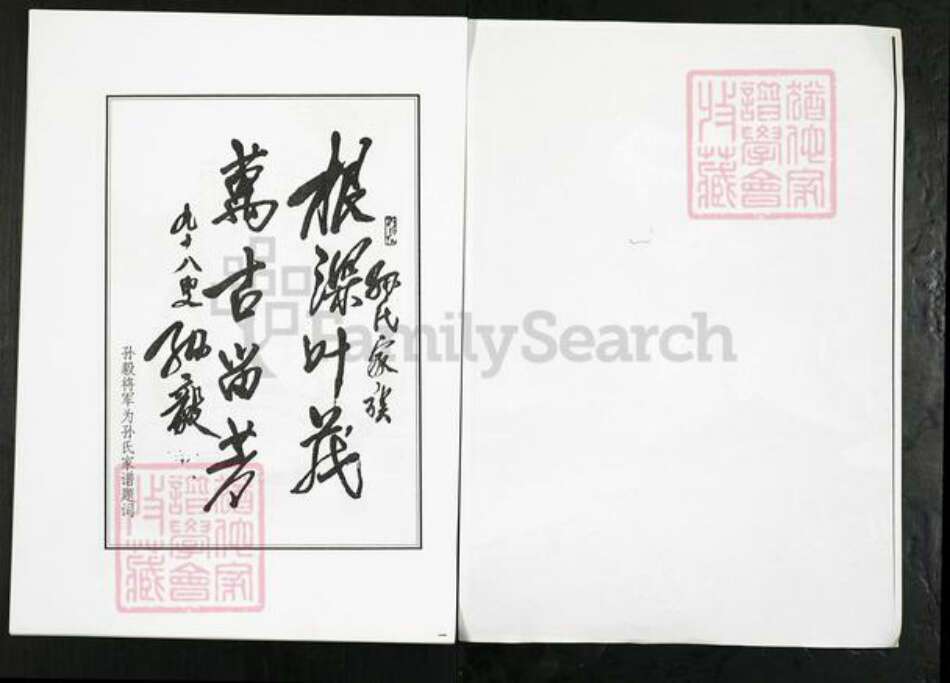 孙氏家族
根深叶茂
萬古尚青
九十八叟
孙毅
孙毅将军为孙氏家谱题词
猶他家
譜學會
收藏
猶他家
譜學會
收藏
FamilySearch